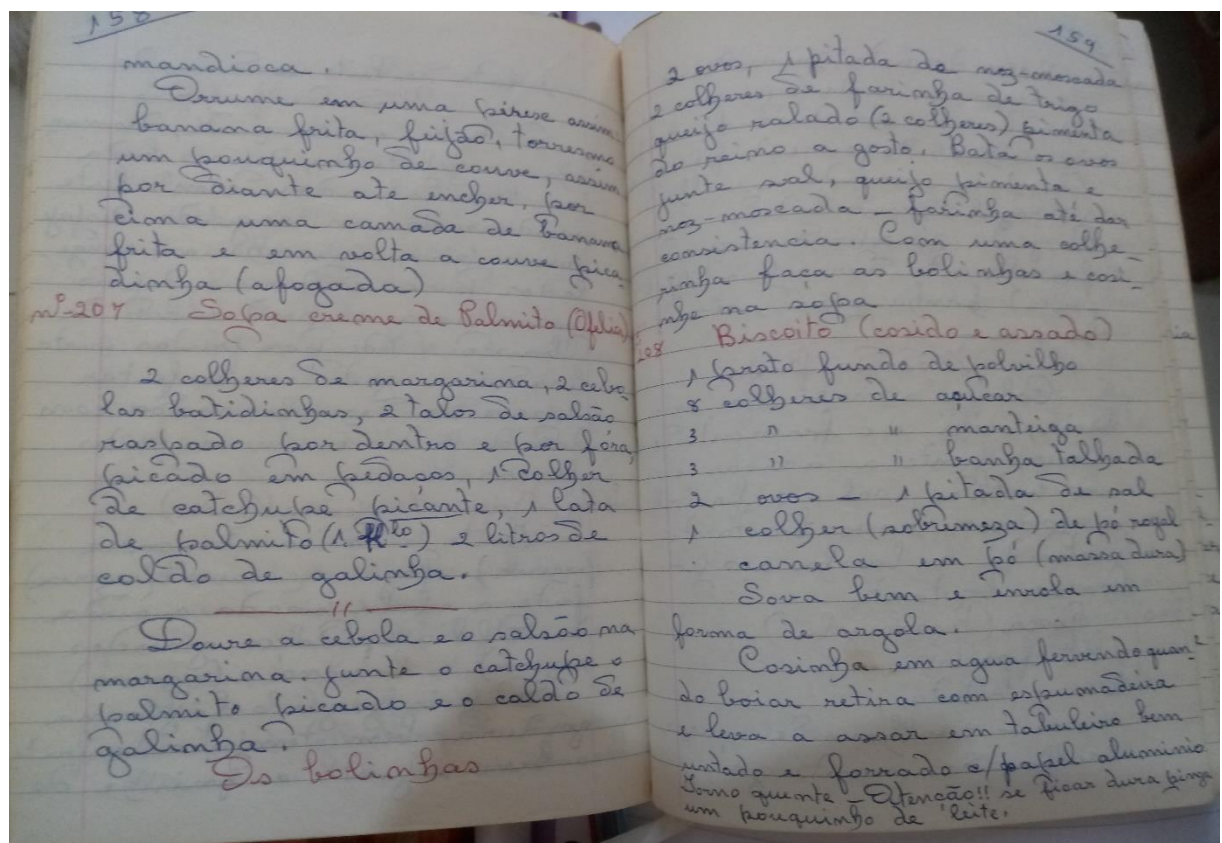 158
mandioca.
Arrume em uma pirese assim
banana frita, feijão, torresmo
um pouquinho de couve, assim
por diante ate encher, por
cima uma camada de banana
frita e em volta a couve pica-
dinha (afogada)
nº-207 Sopa creme de Palmito (Ofelia)
2 colheres de margarina, 2 cebo-
las batidinhas, 2 talos de salsão
raspado por dentro e por fóra,
picado em pedaços, 1 colher
de catchupe picante, 1 lata
de palmito (1 ) 2 litros de
caldo de galinha.
"
Doure a cebola e o salsão na
margarina. junte o catchupe o
palmito picado e o caldo de
galinha.
As bolinhas
159
2 ovos, 1 pitada de noz-moscada
2 colheres de farinha de trigo
queijo ralado (2 colheres) pimenta
do reino a gosto. Bata os ovos
junte sal, queijo pimenta e
noz-moscada - farinha até dar
consistencia. Com uma colhe-
rinha faça as bolinhas e cosi-
nhe na sopa
208 Biscoito (cosido e assado)
1 prato fundo de polvilho
8 colheres de açucar
3 " " manteiga
3 " " banha talhada
2 ovos - 1 pitada de sal
1 colher (sobrimeza) de pó royal
canela em pó (massa dura)
Sova bem e enrola em
forma de argola.
Cosinha em agua fervendo quan-
do boiar retira com espumadeira
e leva a assar em tabuleiro bem
untado e forrado c/papel aluminio
Forno quente - Atenção!! se ficar dura pinga
um pouquinho de leite.